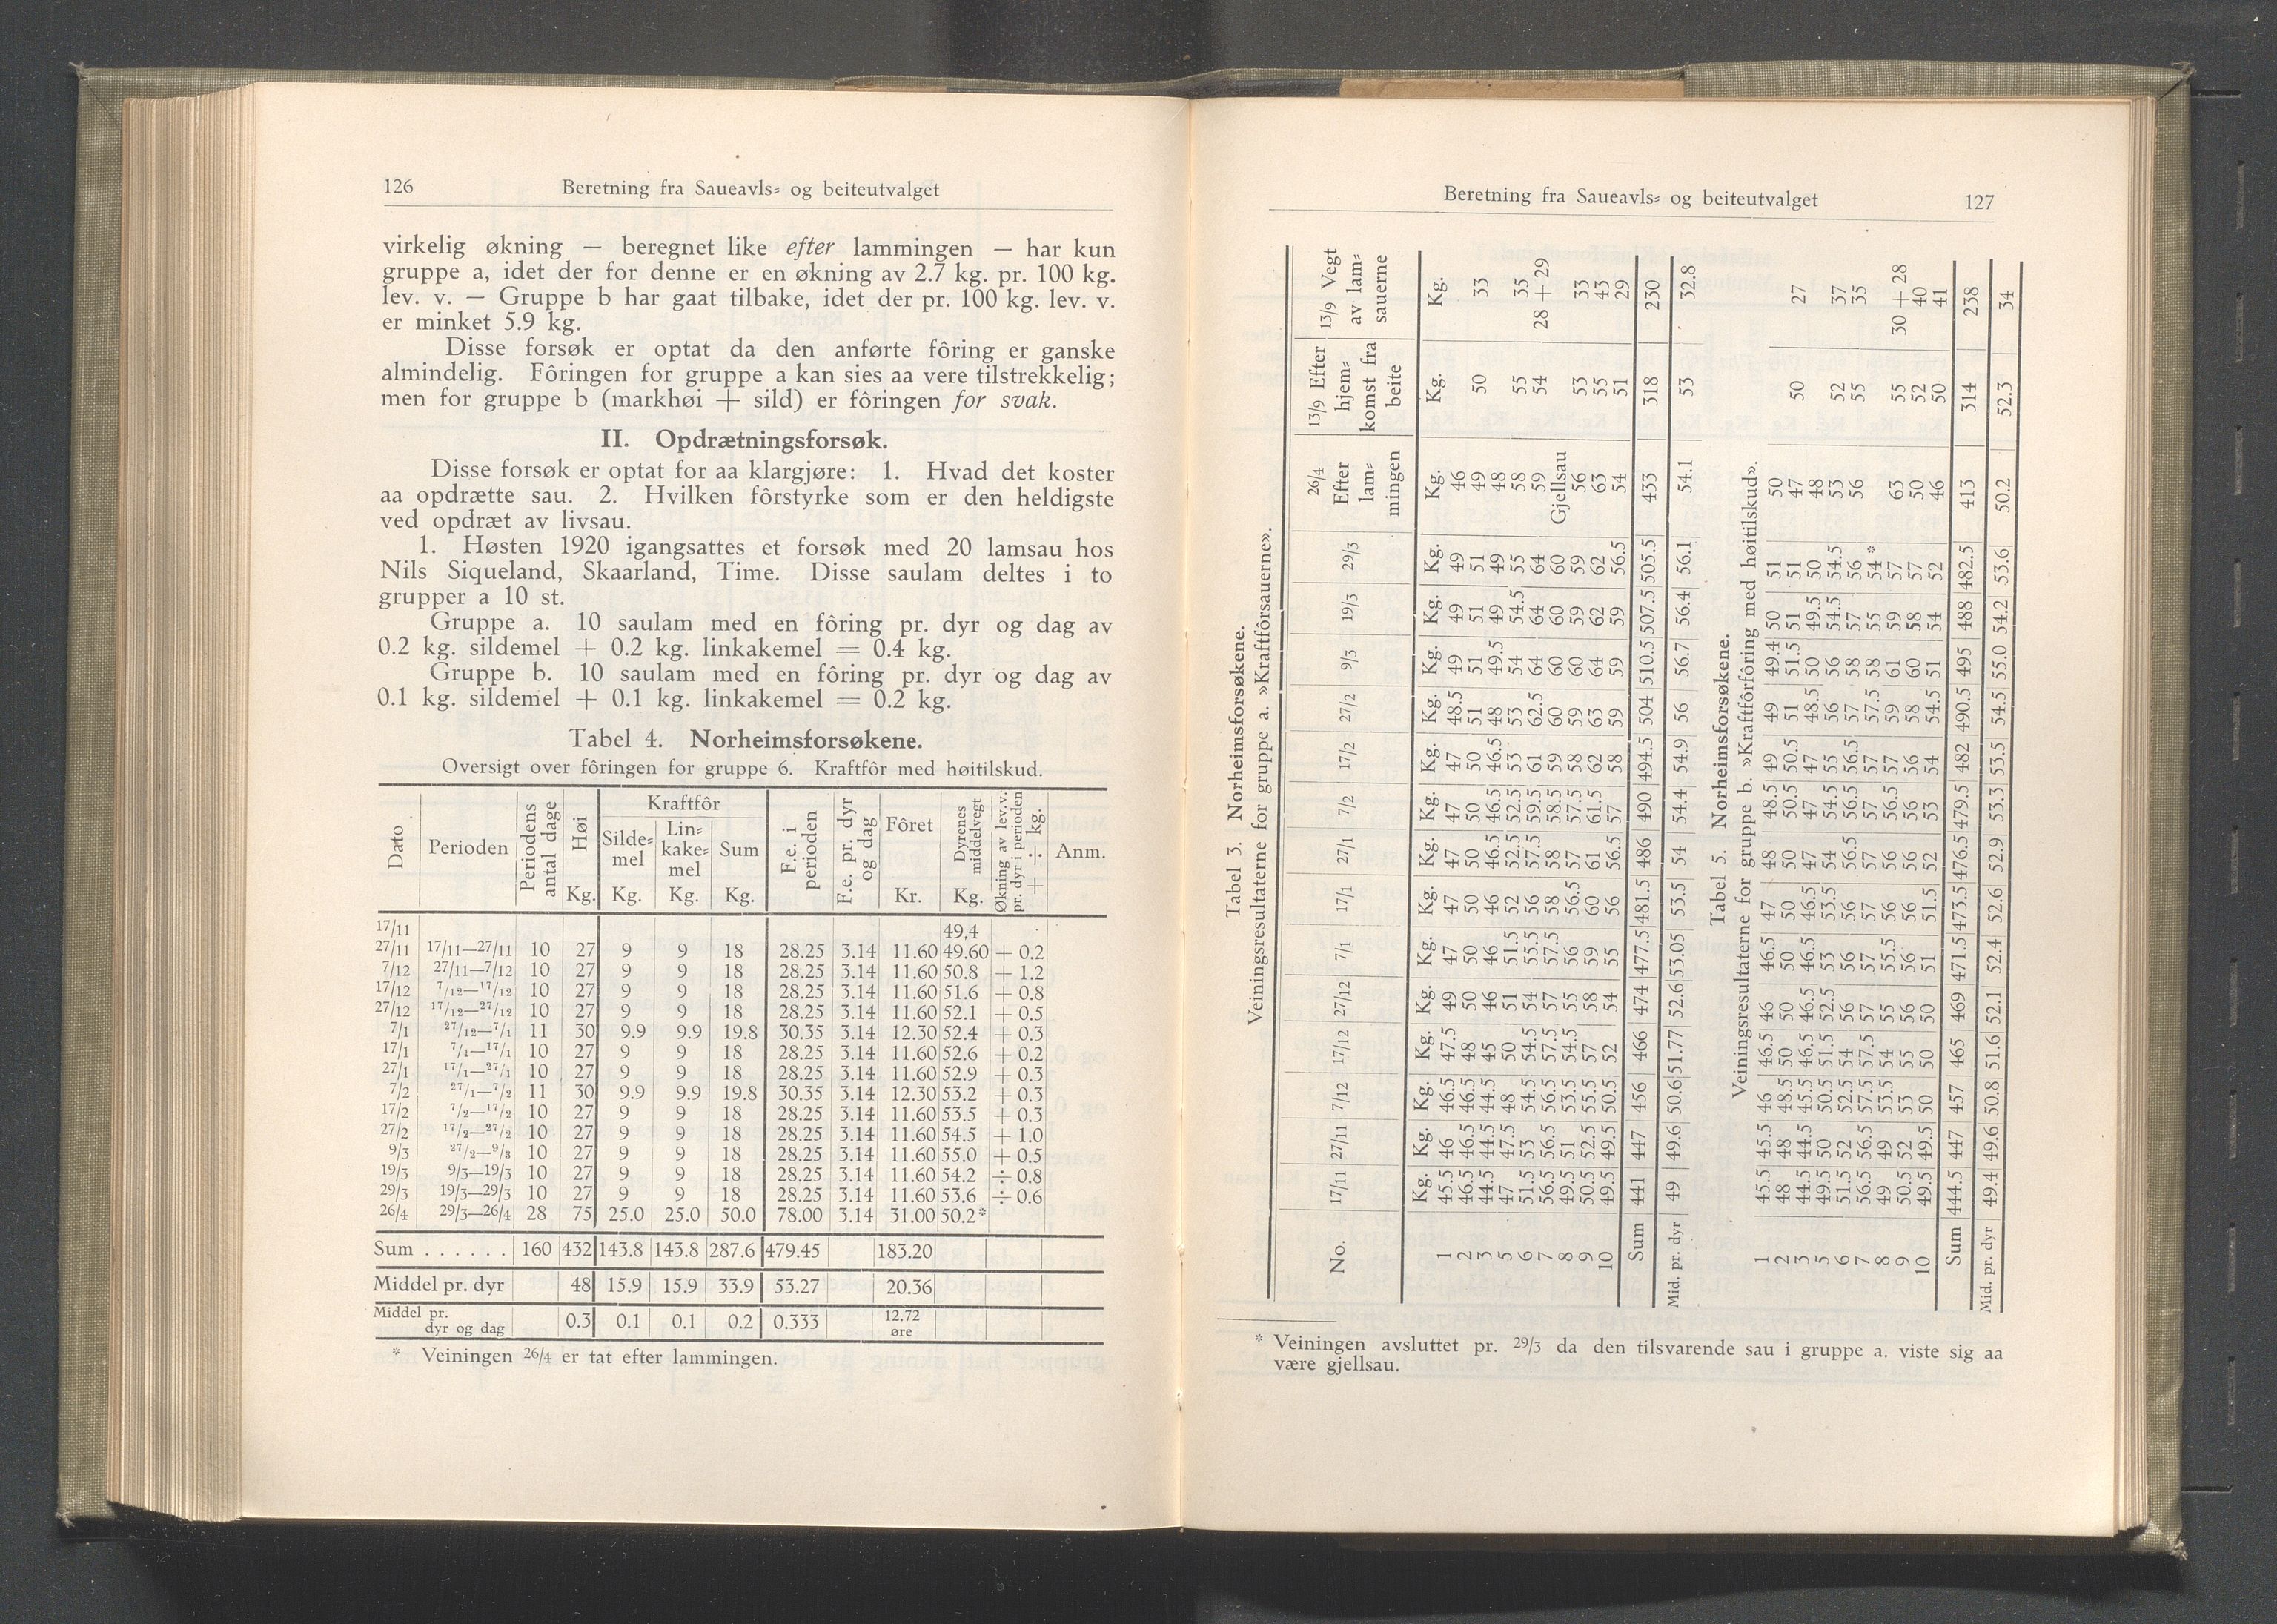 126 Beretning fra Saueavls- og beiteutvalget
virkelig økning — beregnet like efter lammingen — har kun
gruppe a, idet der for denne er en økning av 2.7 kg. pr. 100 kg.
lev. v. — Gruppe b har gaat tilbake, idet der pr. 100 kg. lev. v.
er minket 5.9 kg.
Disse forsøk er optat da den anførte fôring er ganske
almindelig. Fôringen for gruppe a kan sies aa vere tilstrekkelig;
men for gruppe b (markhøi + sild) er fôringen for svak.
II. Opdrætningsforsøk.
Disse forsøk er optat for aa klargjøre: 1. Hvad det koster
aa opdrætte sau. 2. Hvilken fôrstyrke som er den heldigste
ved opdræt av livsau.
1. Høsten 1920 igangsattes et forsøk med 20 lamsau hos
Nils Siqueland, Skaarland, Time. Disse saulam deltes i to
grupper a 10 st.
Gruppe a. 10 saulam med en fôring pr. dyr og dag av
0.2 kg. sildemel + 0.2 kg. linkakemel = 0.4 kg.
Gruppe b. 10 saulam med en fôring pr. dyr og dag av
0.1 kg. sildemel + 0.1 kg. linkakemel = 0.2 kg.
Tabel 4. Norheimsforsøkene.
Oversigt over fôringen for gruppe 6. Kraftfôr med høitilskud.
Dato Perioden Periodens antal dage Høi Kg. Kraftfôr Silde-mel Kg. Lin-kake-mel Kg. Sum Kg. F.e. i perioden F.e. pr. dyr og dag Fôret Kr. Dyrenes middelvegt Kg. Økning av lev.v. pr. dyr i perioden + ÷ kg. Anm.
17/11 49.4
27/11 17/11—27/11 10 27 9 9 18 28.25 3.14 11.60 49.60 + 0.2
7/12 27/11—7/12 10 27 9 9 18 28.25 3.14 11.60 50.8 + 1.2
17/12 7/12—17/12 10 27 9 9 18 28.25 3.14 11.60 51.6 + 0.8
27/12 17/12—27/12 10 27 9 9 18 28.25 3.14 11.60 52.1 + 0.5
7/1 27/12—7/1 11 30 9.9 9.9 19.8 30.35 3.14 12.30 52.4 + 0.3
17/1 7/1—17/1 10 27 9 9 18 28.25 3.14 11.60 52.6 + 0.2
27/1 17/1—27/1 10 27 9 9 18 28.25 3.14 11.60 52.9 + 0.3
7/2 27/1—7/2 11 30 9.9 9.9 19.8 30.35 3.14 12.30 53.2 + 0.3
17/2 7/2—17/2 10 27 9 9 18 28.25 3.14 11.60 53.5 + 0.3
27/2 17/2—27/2 10 27 9 9 18 28.25 3.14 11.60 54.5 + 1.0
9/3 27/2—9/3 10 27 9 9 18 28.25 3.14 11.60 55.0 + 0.5
19/3 9/3—19/3 10 27 9 9 18 28.25 3.14 11.60 54.2 ÷ 0.8
29/3 19/3—29/3 10 27 9 9 18 28.25 3.14 11.60 53.6 ÷ 0.6
26/4 29/3—26/4 28 75 25.0 25.0 50.0 78.00 3.14 31.00 50.2*
Sum . . . . . . 160 432 143.8 143.8 287.6 479.45 183.20
Middel pr. dyr 48 15.9 15.9 33.9 53.27 20.36
Middel pr. dyr og dag 0.3 0.1 0.1 0.2 0.333 12.72 øre
* Veiningen 26/4 er tat efter lammingen.
Beretning fra Saueavls- og beiteutvalget 127
Tabel 3. Norheimsforsøkene.
Veiningsresultaterne for gruppe a. »Kraftfôrsauerne».
No. 17/11 27/11 7/12 17/12 27/12 7/1 17/1 27/1 7/2 17/2 27/2 9/3 19/3 29/3 26/4 Efter lam-mingen 13/9 Efter hjem-komst fra beite 13/9 Vegt av lam-sauerne
Kg. Kg. Kg. Kg. Kg. Kg. Kg. Kg. Kg. Kg. Kg. Kg. Kg. Kg. Kg. Kg. Kg.
1 45.5 46 46.5 47.5 49 47 47 47 47 47 48.5 49 49 49 46
2 46.5 46.5 46.5 48 50 50 50 50 50 50 51 51 51 51 49 50 33
3 44.5 44.5 44.5 45 46 46 46 46.5 46.5 46.5 48 49.5 49 49 48
5 47 47.5 48 50 51 51.5 52 52.5 52.5 53 53 54 54.5 55 58 55 35
6 51.5 53 54.5 54.5 54 55.5 56 57.5 59.5 61 62.5 64 64 64 59 54 28 + 29
7 56.5 56.5 56.5 57.5 57 57.5 58 58 58.5 59 60 60 60 60 Gjellsau
8 49.5 51 53.5 54.5 55 56 56.5 57 57.5 58 59 60 59 59 56 53 33
9 50.5 52.5 55.5 57 58 59 60 61 61.5 62 63 64 62 62 63 55 43
10 49.5 49.5 50.5 52 54 55 56 56.5 57 58 59 59 59 56.5 54 51 29
Sum 441 447 456 466 474 477.5 481.5 486 490 494.5 504 510.5 507.5 505.5 433 318 230
Mid. pr. dyr 49 49.6 50.6 51.77 52.6 53.05 53.5 54 54.4 54.9 56 56.7 56.4 56.1 54.1 53 32.8
Tabel 5. Norheimsforsøkene.
Veiningsresultaterne for gruppe b. »Kraftfôrfôring med høitilskud».
1 45.5 45.5 46 46.5 46 46.5 47 48 48.5 49 49 49.4 50 51 50
2 48 48 48.5 50 50 50 50 50 50.5 50.5 51 51.5 51 51 47 50 27
3 44.5 44.5 45.5 46.5 46.5 46.5 46.5 47 47 47 48.5 50 49.5 50 48
5 49.5 50 50.5 51.5 52.5 53 53.5 54 54.5 55 56 56 54.5 54.5 53 52 37
6 51.5 52 52.5 54 56 56 56 56.5 56.5 56.5 57 58 57 56 56 55 35
7 56.5 56.5 57.5 57.5 57 57 57 57 57 57 57.5 58 55 54*
8 49 49 53.5 54 55 55.5 56 56 56.5 57 59 61 59 57 63 55 30 + 28
9 50.5 52 53 55 56 56 56 56 56 56 58 60 58 57 50 52 40
10 49.5 49.5 50 50 50 51 51.5 52 53 54 54.5 51 54 52 46 50 41
Sum 444.5 447 457 465 469 471.5 473.5 476.5 479.5 482 490.5 495 488 482.5 413 314 238
Mid. pr. dyr 49.4 49.6 50.8 51.6 52.1 52.4 52.6 52.9 53.3 53.5 54.5 55.0 54.2 53.6 50.2 52.3 34
* Veiningen avsluttet pr. 29/3 da den tilsvarende sau i gruppe a. viste sig aa
være gjellsau.